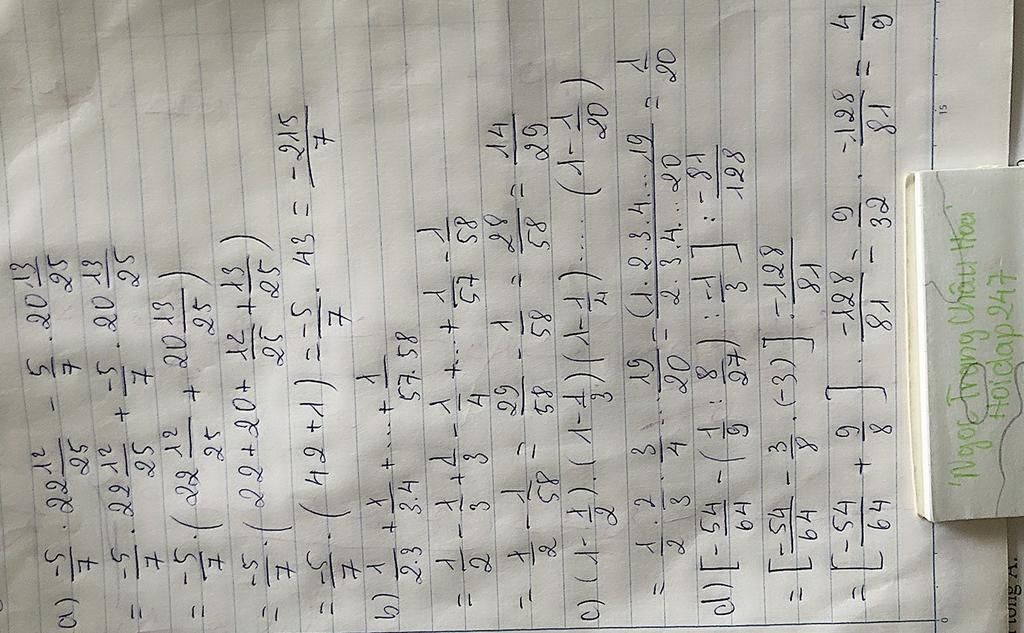 a) -5/7 . 22 12/25 - 5/7 . 20 13/25
= -5/7 . 22 12/25 + -5/7 . 20 13/25
= -5/7 . (22 12/25 + 20 13/25)
= -5/7 . (22 + 20 + 12/25 + 13/25)
= -5/7 . (42 + 1) = -5/7 . 43 = -215/7
b) 1/2.3 + 1/3.4 + .... + 1/57.58
= 1/2 - 1/3 + 1/3 - 1/4 + ... + 1/57 - 1/58
= 1/2 - 1/58 = 29/58 - 1/58 = 28/58 = 14/29
c) (1 - 1/2) . (1 - 1/3) (1 - 1/4) ..... (1 - 1/20)
= 1/2 . 2/3 . 3/4 ... 19/20 = (1.2.3.4...19/2.3.4...20 = 1/20
d) [-54/64 - (1/9 : 8/27) : -1/3] : -81/128
= [-54/64 - 3/8 . (-3)] . -128/81
= [-54/64 + 9/8] . -128/81 = 9/32 . -128/81 = 4/9
"Ngọc Trang Châu Hoa"
Hoidap247
15
0